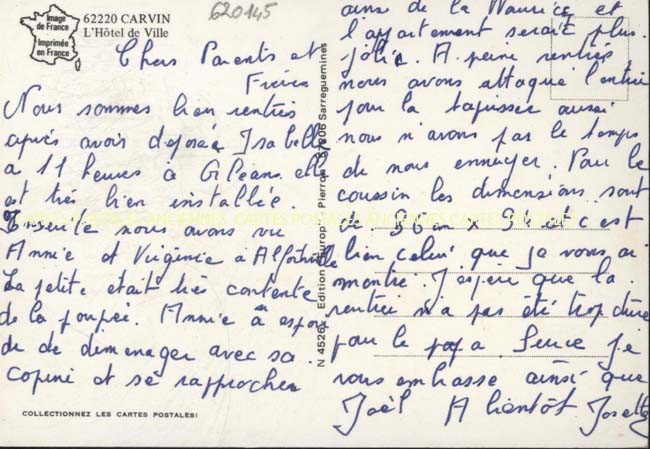 Image
de France
Imprimée
en France
62220 CARVIN
L'Hôtel de Ville
620145
Chers Parents et
Frères
Nous sommes bien rentrés
après avoir déposée Isabelle
a 11 heures à Orléans elle
est très bien installée.
Ensuite nous avons vu
Annie et Virginie a Alfortville
La petite était très contente
de la poupée. Annie a espoi
de demenager avec sa
copine et se rapprocher
COLLECTIONNEZ LES CARTES POSTALES!
N 45262 Edition "Europ" Pierron 57206 Sarreguemines
ainsi de la Maurice et
l'appartement serait plus
jolie. A peine rentrés
nous avons attaque l'entrée
pour la tapisser aussi
nous n'avons pas le temps
de nous ennuyer. Pour le
coussin les dimensions sont
de 56 cm x 54 et c est
bien celui que je vous ai
montré. J'espère que la
rentrée n'a pas été trop dure
pour le papa. Je
vous embrasse ainsi que
Joël A bientôt Josette
CARTES POSTALES ANCIENNES